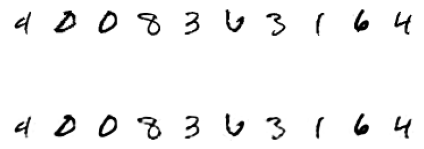 4 0 0 8 3 6 3 1 6 4
4 0 0 8 3 6 3 1 6 4